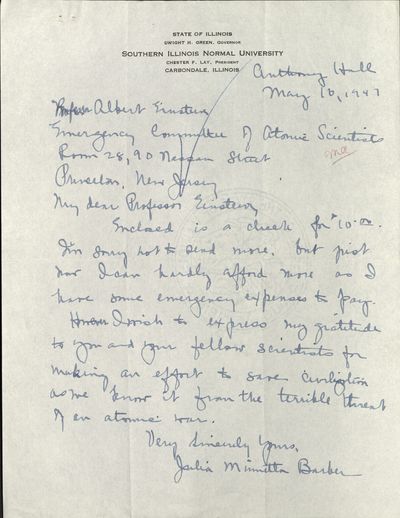 STATE OF ILLINOIS
DWIGHT H. GREEN, GOVERNOR
SOUTHERN ILLINOIS NORMAL UNIVERSITY
CHESTER F. LAY, PRESIDENT
CARBONDALE, ILLINOIS
Anthony Hall
May 10, 1947
Professor Albert Einstein
Emergency Committee of Atomic Scientists
Room 28, 90 Nassau Street
Princeton, New Jersey
My dear Professor Einstein
Enclosed is a check for $10.00.
I'm sorry not to send more, but just
now I can hardly afford more as I
have some emergency expenses to pay.
I wish to express my gratitude
to you and your fellow scientists for
making an effort to save civilization
as we know it from the terrible threat
of an atomic war.
Very Sincerely Yours,
Julia Minnetta Barber